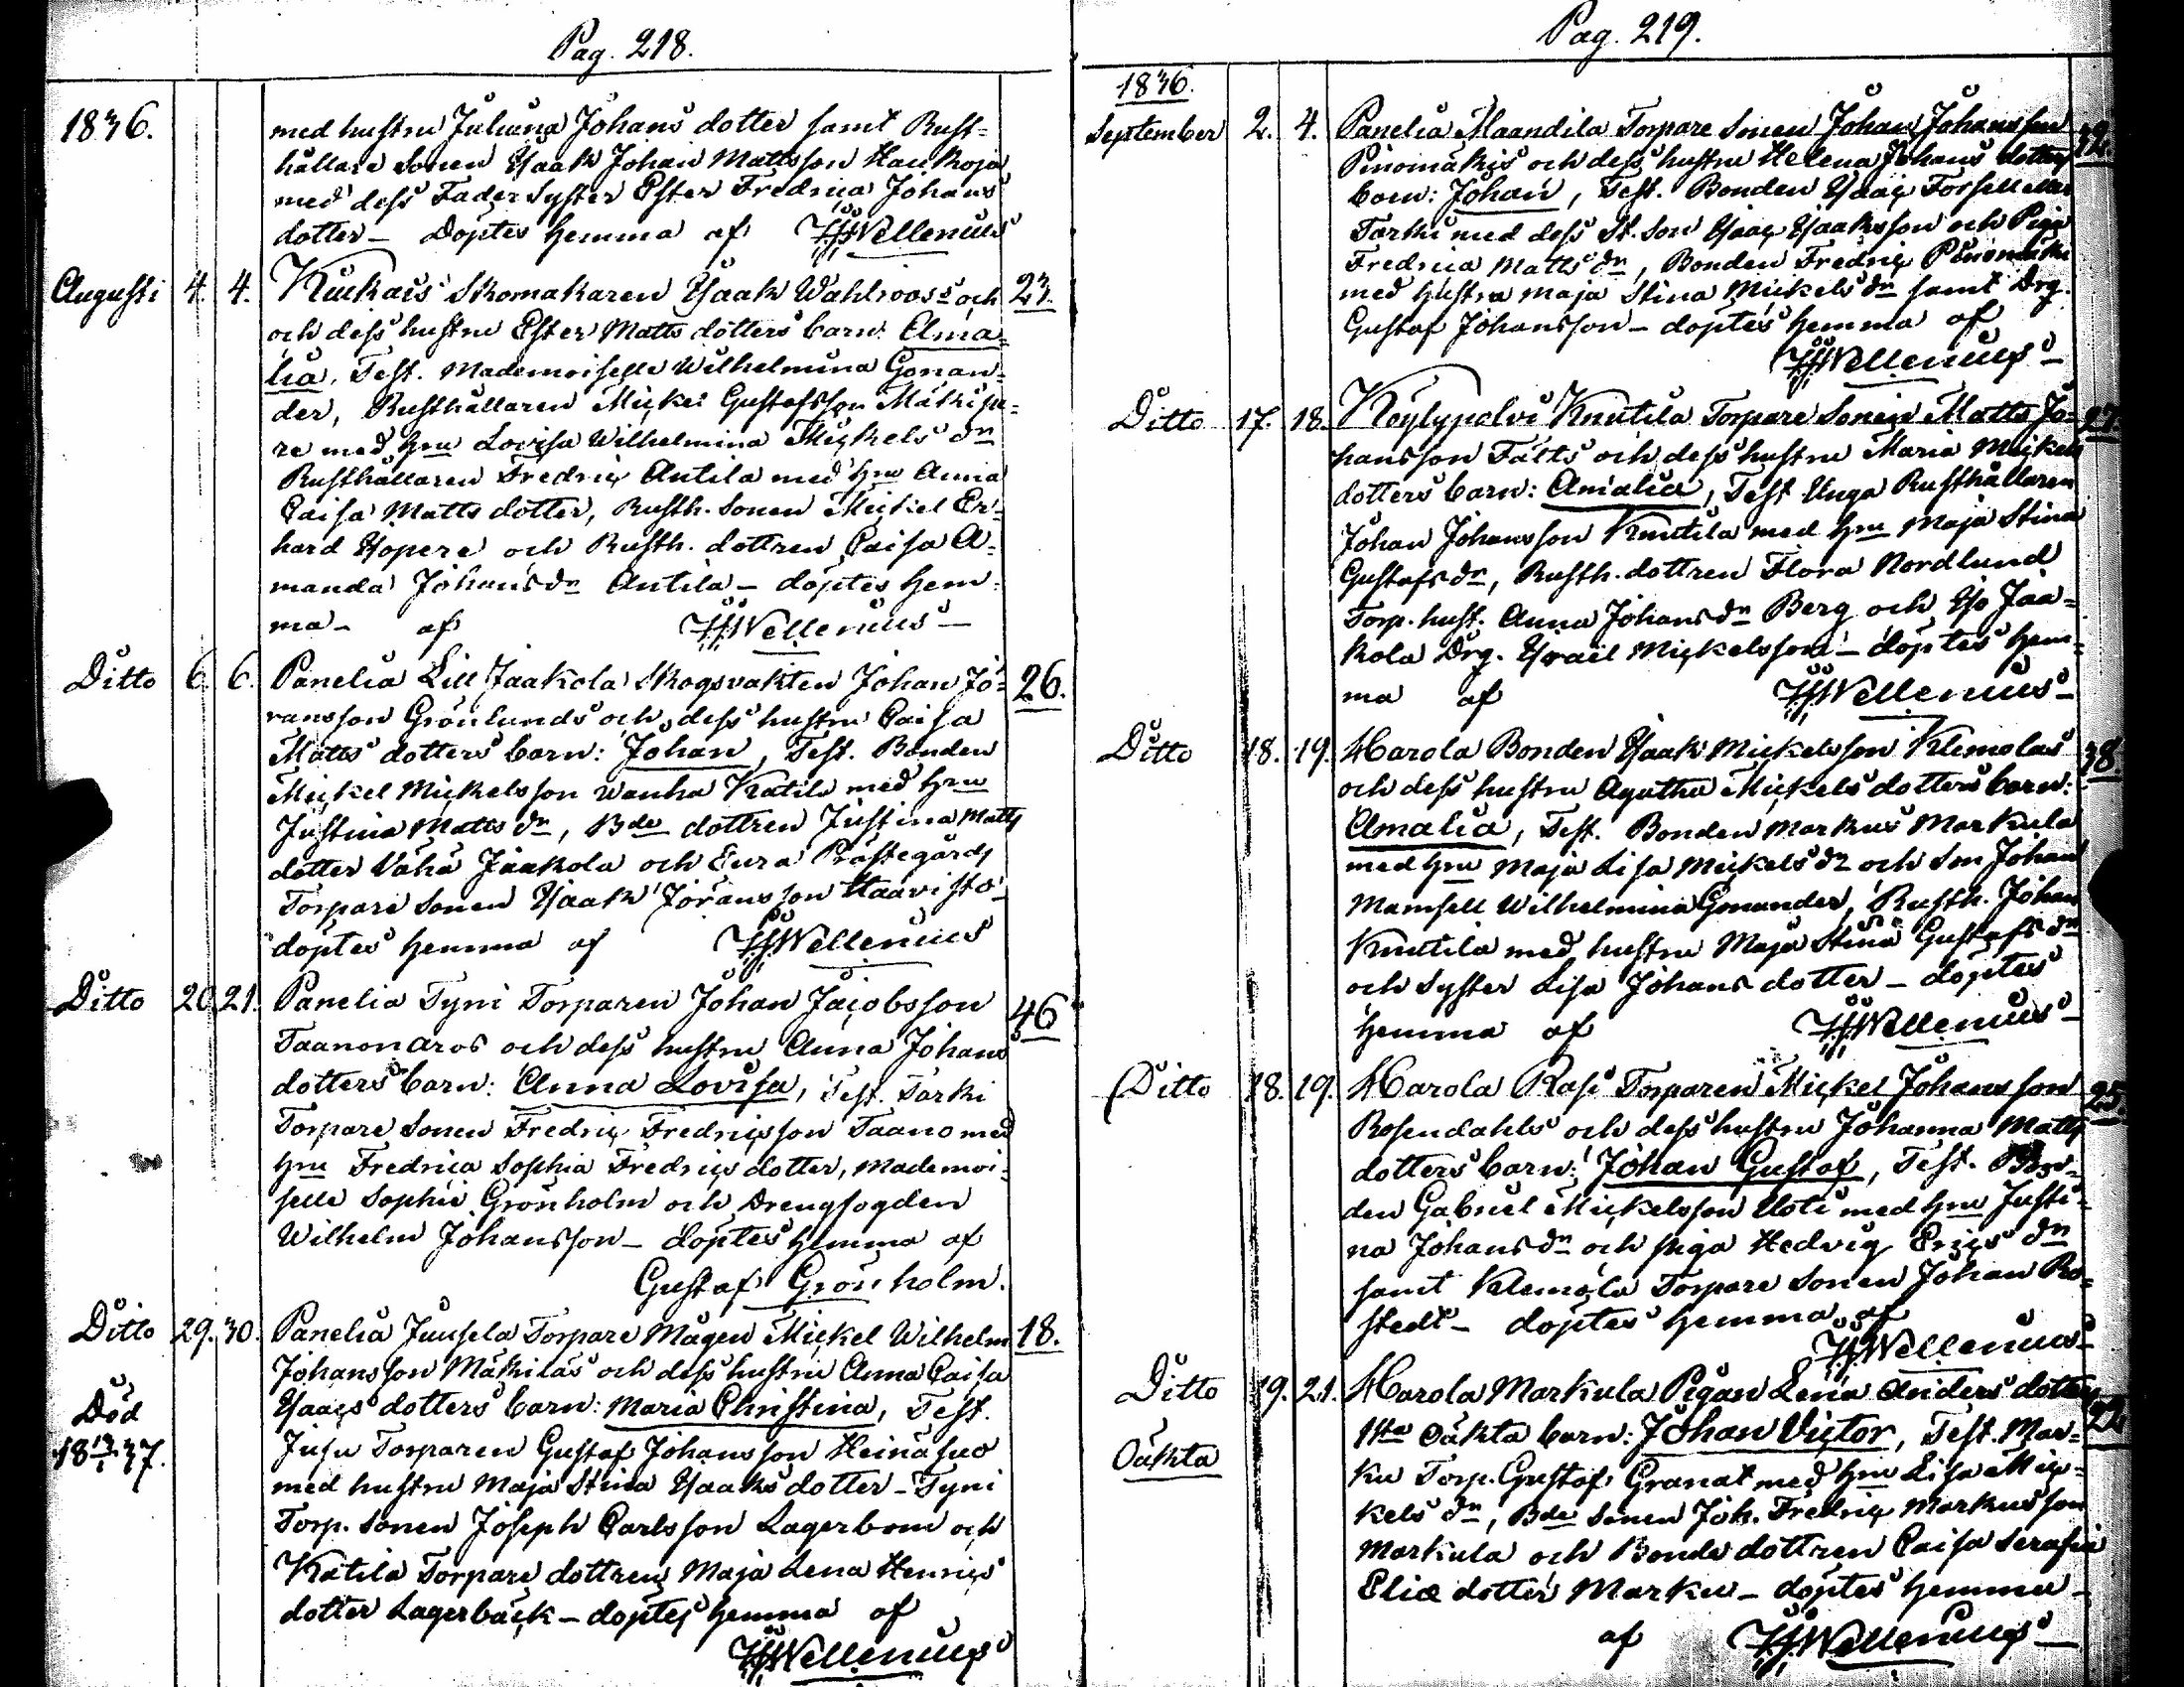 Pag. 218.
1836.
med hustru Juliana Johans dotter samt Rust-
hållare Sonen Isaak Johan Mattsson Haukoja
med dess Fader Syster Ester Fredrica Johans
dotter – Döptes hemma af Wellenius
Augusti 4. 4. Kiukais Skomakaren Isaak Wahlroos's och 23.
och dess hustru Ester Matts dotters barn: Ama=
lia, Test. Mademoiselle Wilhelmina Gonan=
der, Rusthållaren Mickel Gustafsson
re med hru Lovisa Wilhelmina Mickels dr
Rusthållaren Fredric Antila med hru Anna
Caisa Matts dotter, Rusth. Sonen Mickel Er=
hard Yopere och Rusth. dottren Caisa A=
manda Johans dr Antila – döptes hem=
ma – af Wellenius –
Ditto 6. 6. Panelia Lill Jaakola Skogsvakten Johan Jö= 26.
ransson Grönlunds och dess hustru Caisa
Matts dotters barn: Johan, Test. Bonden
Mickel Mickelsson Wanha Katila med hru
Justina Matts dr, Bde dottren Justina Matts
dotter Vähä Jaakola och Eura Prästegårds
Torpare Sonen Isaak Jöransson Haavisto –
döptes hemma af Wellenius
Ditto 20. 21. Panelia Tyni Torparen Johan Jacobsson 46
Taanonaros och dess hustru Anna Johans
dotters barn: Anna Lovisa, Test. Tarki
Torpare Sonen Fredric Fredricsson Taano med
hru Fredrica Sophia Fredrics dotter, Mademoi=
selle Sophie Grönholm och Drengfogden
Wilhelm Johansson – döptes hemma af
Gustaf Grönholm.
Ditto 29. 30. Panelia Juusela Torpare Mågen Mickel Wilhelm 18.
Johansson Mäkiläs och dess hustru Anna Caisa
Isaacs dotters barn: Maria Christina, Test.
Död
18 37.
Jusu Torparen Gustaf Johansson Heinäsuo
med hustru Maja Stina Isaaks dotter – Tyni
Torp. Sonen Joseph Carlsson Lagerbom och
Katila Torpare dottren Maja Lena Henrics
dotter Lagerbäck – döptes hemma af
Wellenius
Pag. 219.
1836.
September 2. 4. Panelia Maandila Torpare Sonen Johan Johansson
Pinomäkis och dess hustru Helena Johans dotters
barn: Johan, Test. Bonden Isaac Forsell eller
Tarki med dess St. Son Isaac Isaaksson och Piga
Fredrica Matts dr, Bonden Fredric Pinomäki
med hustru Maja Stina Mickels dr samt Drg.
Gustaf Johansson – döptes hemma af
Wellenius –
Ditto 17. 18. Köylypolvi Knutila Torpare Sonen Matts Jo= 27.
hansson Fälts och dess hustru Maria Mickels
dotters barn: Amalia, Test Unga Rusthållaren
Johan Johansson Knutila med hru Maja Stina
Gustafs dr, Rusth. dottren Flora Nordlund
Torp. hust. Anna Johans dr Berg och Iso Jaa=
kola Drg. Israel Mickelsson – döptes hem=
ma af Wellenius –
Ditto 18. 19. Harola Bonden Isaak Mickelsson Klemolas 38.
och dess hustru Agatha Mickels dotters barn:
Amalia, Test. Bonden Markus Markula
med hru Maja Lisa Mickels dr och Son Johan
Mamsell Wilhelmina Gonander, Rusth. Johan
Knutila med hustru Maja Stina Gustafs dr
och Syster Lisa Johans dotter – döptes
hemma af Wellenius –
Ditto 18. 19. Harola Rasi Torparen Mickel Johansson 25.
Rosendahls och dess hustru Johanna Matts
dotters barn: Johan Gustaf, Test. Bon=
den Gabriel Mickelsson Uoti med hru Justi=
na Johans dr och piga Hedvig Erics dr
samt Klemola Torpare Sonen Johan Ro=
stedt – döptes hemma af
Wellenius –
Ditto 19. 21. Harola Markula Pigan Lena Anders dotters 22
Oäkta
1sta Oäkta barn: Johan Victor, Test. Mar=
ku Torp. Gustaf Granat med hru Lisa Mic=
kels dr, Bde Sonen Joh. Fredric Markusson
Markula och Bonde dottren Caisa Serafia
Eliæ dotter Marku – döptes hemma –
af Wellenius –